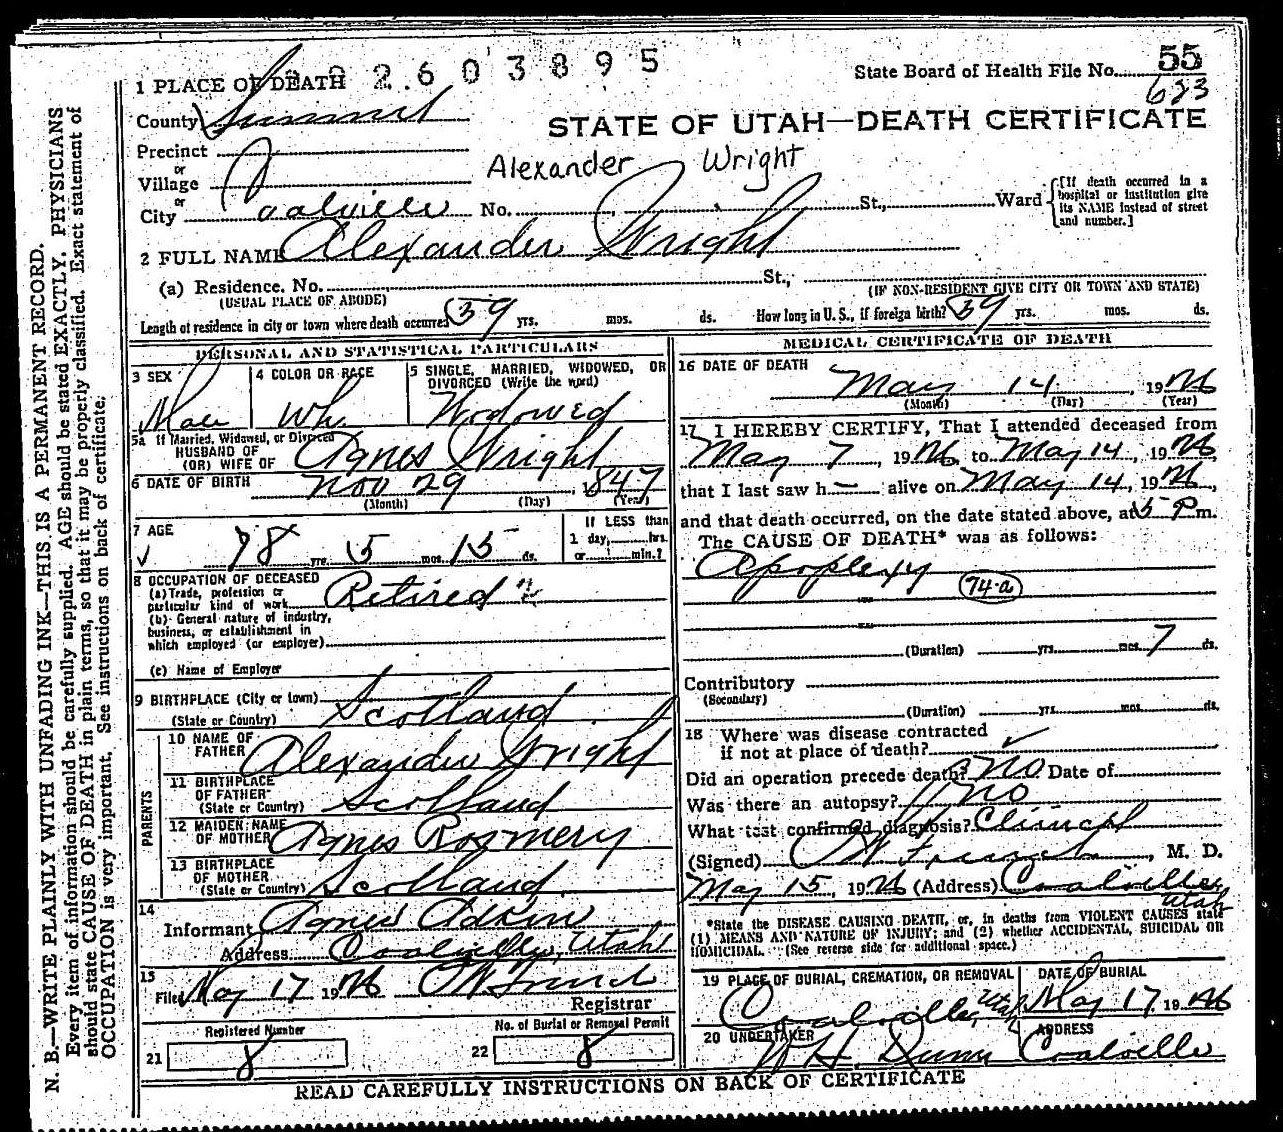 2603895
State Board of Health File No. 55
623
1 PLACE OF DEATH
County Summit
STATE OF UTAH—DEATH CERTIFICATE
Precinct
or
Village
Alexander Wright
or
City Coalville No. St., Ward
[If death occurred in a hospital or institution give its NAME instead of street and number.]
2 FULL NAME Alexander Wright
(a) Residence. No. St.,
(USUAL PLACE OF ABODE) (IF NON-RESIDENT GIVE CITY OR TOWN AND STATE)
Length of residence in city or town where death occurred 39 yrs. mos. ds. How long in U. S., if foreign birth? 39 yrs. mos. ds.
PERSONAL AND STATISTICAL PARTICULARS
3 SEX Male
4 COLOR OR RACE Wh.
5 SINGLE, MARRIED, WIDOWED, OR DIVORCED (Write the word) Widowed
5a If Married, Widowed, or Divorced
HUSBAND OF
(OR) WIFE OF Agnes Wright
6 DATE OF BIRTH Nov 29, 1847
(Month) (Day) (Year)
7 AGE 78 yrs. 5 mos. 15 ds.
If LESS than
1 day, hrs.
or min.?
8 OCCUPATION OF DECEASED
(a) Trade, profession or
particular kind of work Retired
(b) General nature of industry,
business, or establishment in
which employed (or employer)
(c) Name of Employer
9 BIRTHPLACE (City or town)
(State or Country) Scotland
PARENTS
10 NAME OF
FATHER Alexander Wright
11 BIRTHPLACE
OF FATHER
(State or Country) Scotland
12 MAIDEN NAME
OF MOTHER Agnes
13 BIRTHPLACE
OF MOTHER
(State or Country) Scotland
14
Informant Agnes Adkin
Address Coalville, Utah
15
Filed May 17 1926
Registrar
Registered Number
21 8
No. of Burial or Removal Permit
22 8
MEDICAL CERTIFICATE OF DEATH
16 DATE OF DEATH
May 14, 1926
(Month) (Day) (Year)
17 I HEREBY CERTIFY, That I attended deceased from
May 7, 1926, to May 14, 1926,
that I last saw h— alive on May 14, 1926,
and that death occurred, on the date stated above, at 5 P m.
The CAUSE OF DEATH* was as follows:
Apoplexy 74-a
(Duration) yrs. mos. 7 ds.
Contributory
(Secondary)
(Duration) yrs. mos. ds.
18 Where was disease contracted
if not at place of death?
Did an operation precede death? No Date of
Was there an autopsy? No
What test confirmed diagnosis? Clinical
(Signed) , M. D.
May 15, 1926 (Address) Coalville
Utah
*State the DISEASE CAUSING DEATH, or, in deaths from VIOLENT CAUSES state
(1) MEANS AND NATURE OF INJURY; and (2) whether ACCIDENTAL, SUICIDAL OR
HOMICIDAL. (See reverse side for additional space.)
19 PLACE OF BURIAL, CREMATION, OR REMOVAL DATE OF BURIAL
Coalville, Utah May 17 1926
20 UNDERTAKER ADDRESS
W H. Dunn Coalville
READ CAREFULLY INSTRUCTIONS ON BACK OF CERTIFICATE
N. B.—WRITE PLAINLY WITH UNFADING INK—THIS IS A PERMANENT RECORD.
Every item of information should be carefully supplied. AGE should be stated EXACTLY. PHYSICIANS
should state CAUSE OF DEATH in plain terms, so that it may be properly classified. Exact statement of
OCCUPATION is very important. See instructions on back of certificate.